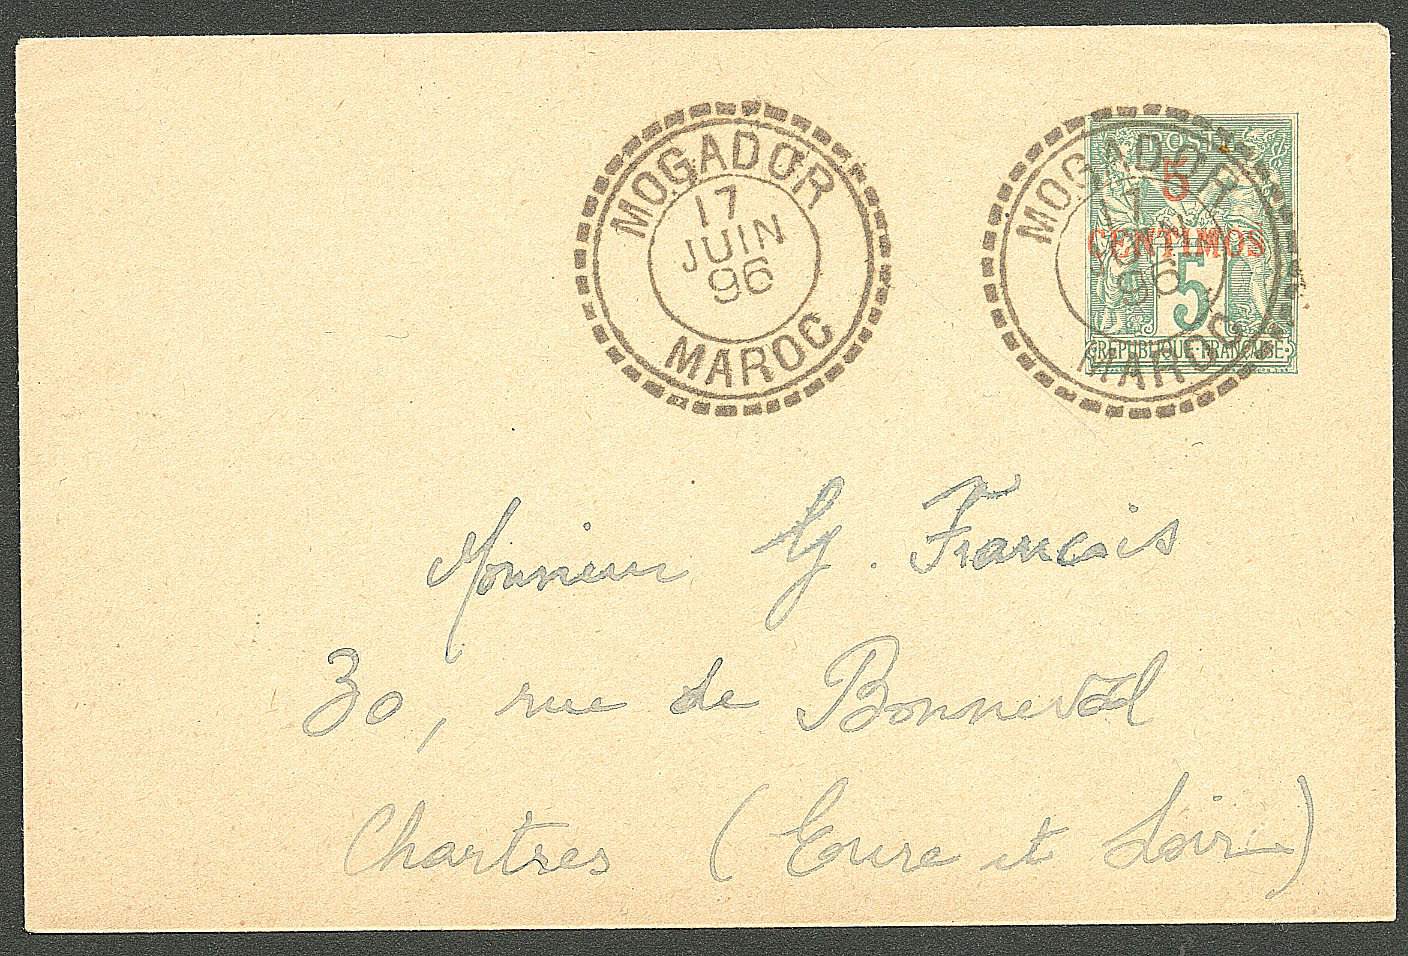 MOGADOR
17
JUIN
96
MAROC
MOGADOR
17
JUIN
96
MAROC
POSTES
5
CENTIMOS
5
REPUBLIQUE·FRANÇAISE
Monsieur G. Francais
30, rue de Bonneval
Chartres (Eure et Loir)